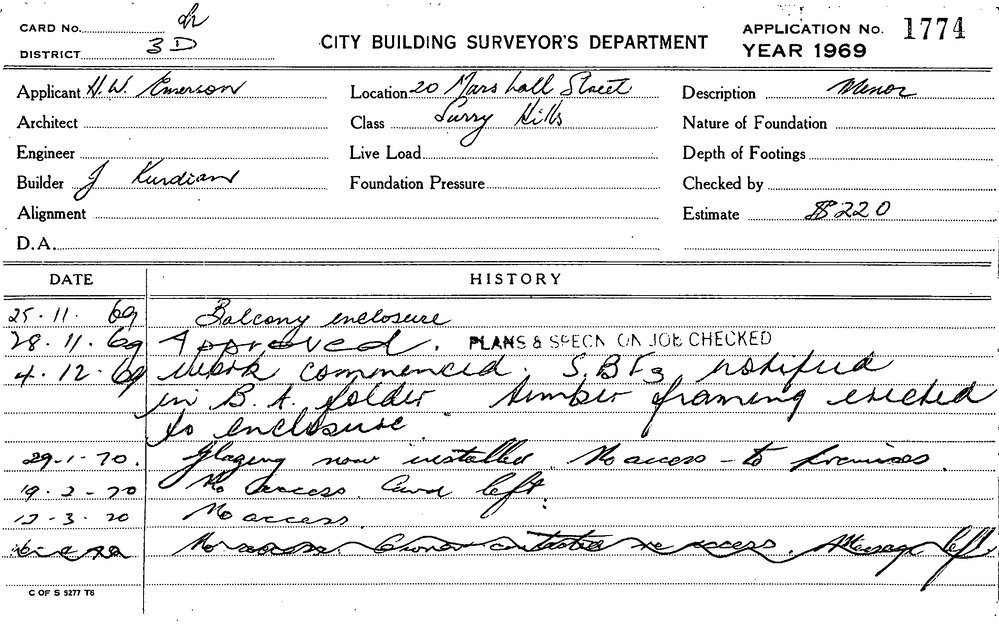 CARD No.
DISTRICT 3D
CITY BUILDING SURVEYOR'S DEPARTMENT
APPLICATION No. 1774
YEAR 1969
Applicant H.W. Emerson
Location 20 Marshall Street
Description Minor
Architect
Class Surry Hills
Nature of Foundation
Engineer
Live Load
Depth of Footings
Builder J Kurdian
Foundation Pressure
Checked by
Alignment
Estimate $220
D.A.
DATE HISTORY
25.11.69 Balcony enclosure
28.11.69 Approved. PLANS & SPECN ON JOB CHECKED
4.12.69 Work commenced. notified
in B.A. folder timber framing erected
to enclosure
29-1-70. Glazing now installed. No access to premises.
19-2-70 No access. Card left.
-3-70 No access.
No access. Owner contacted re access. Message left
C OF S 5277 T6